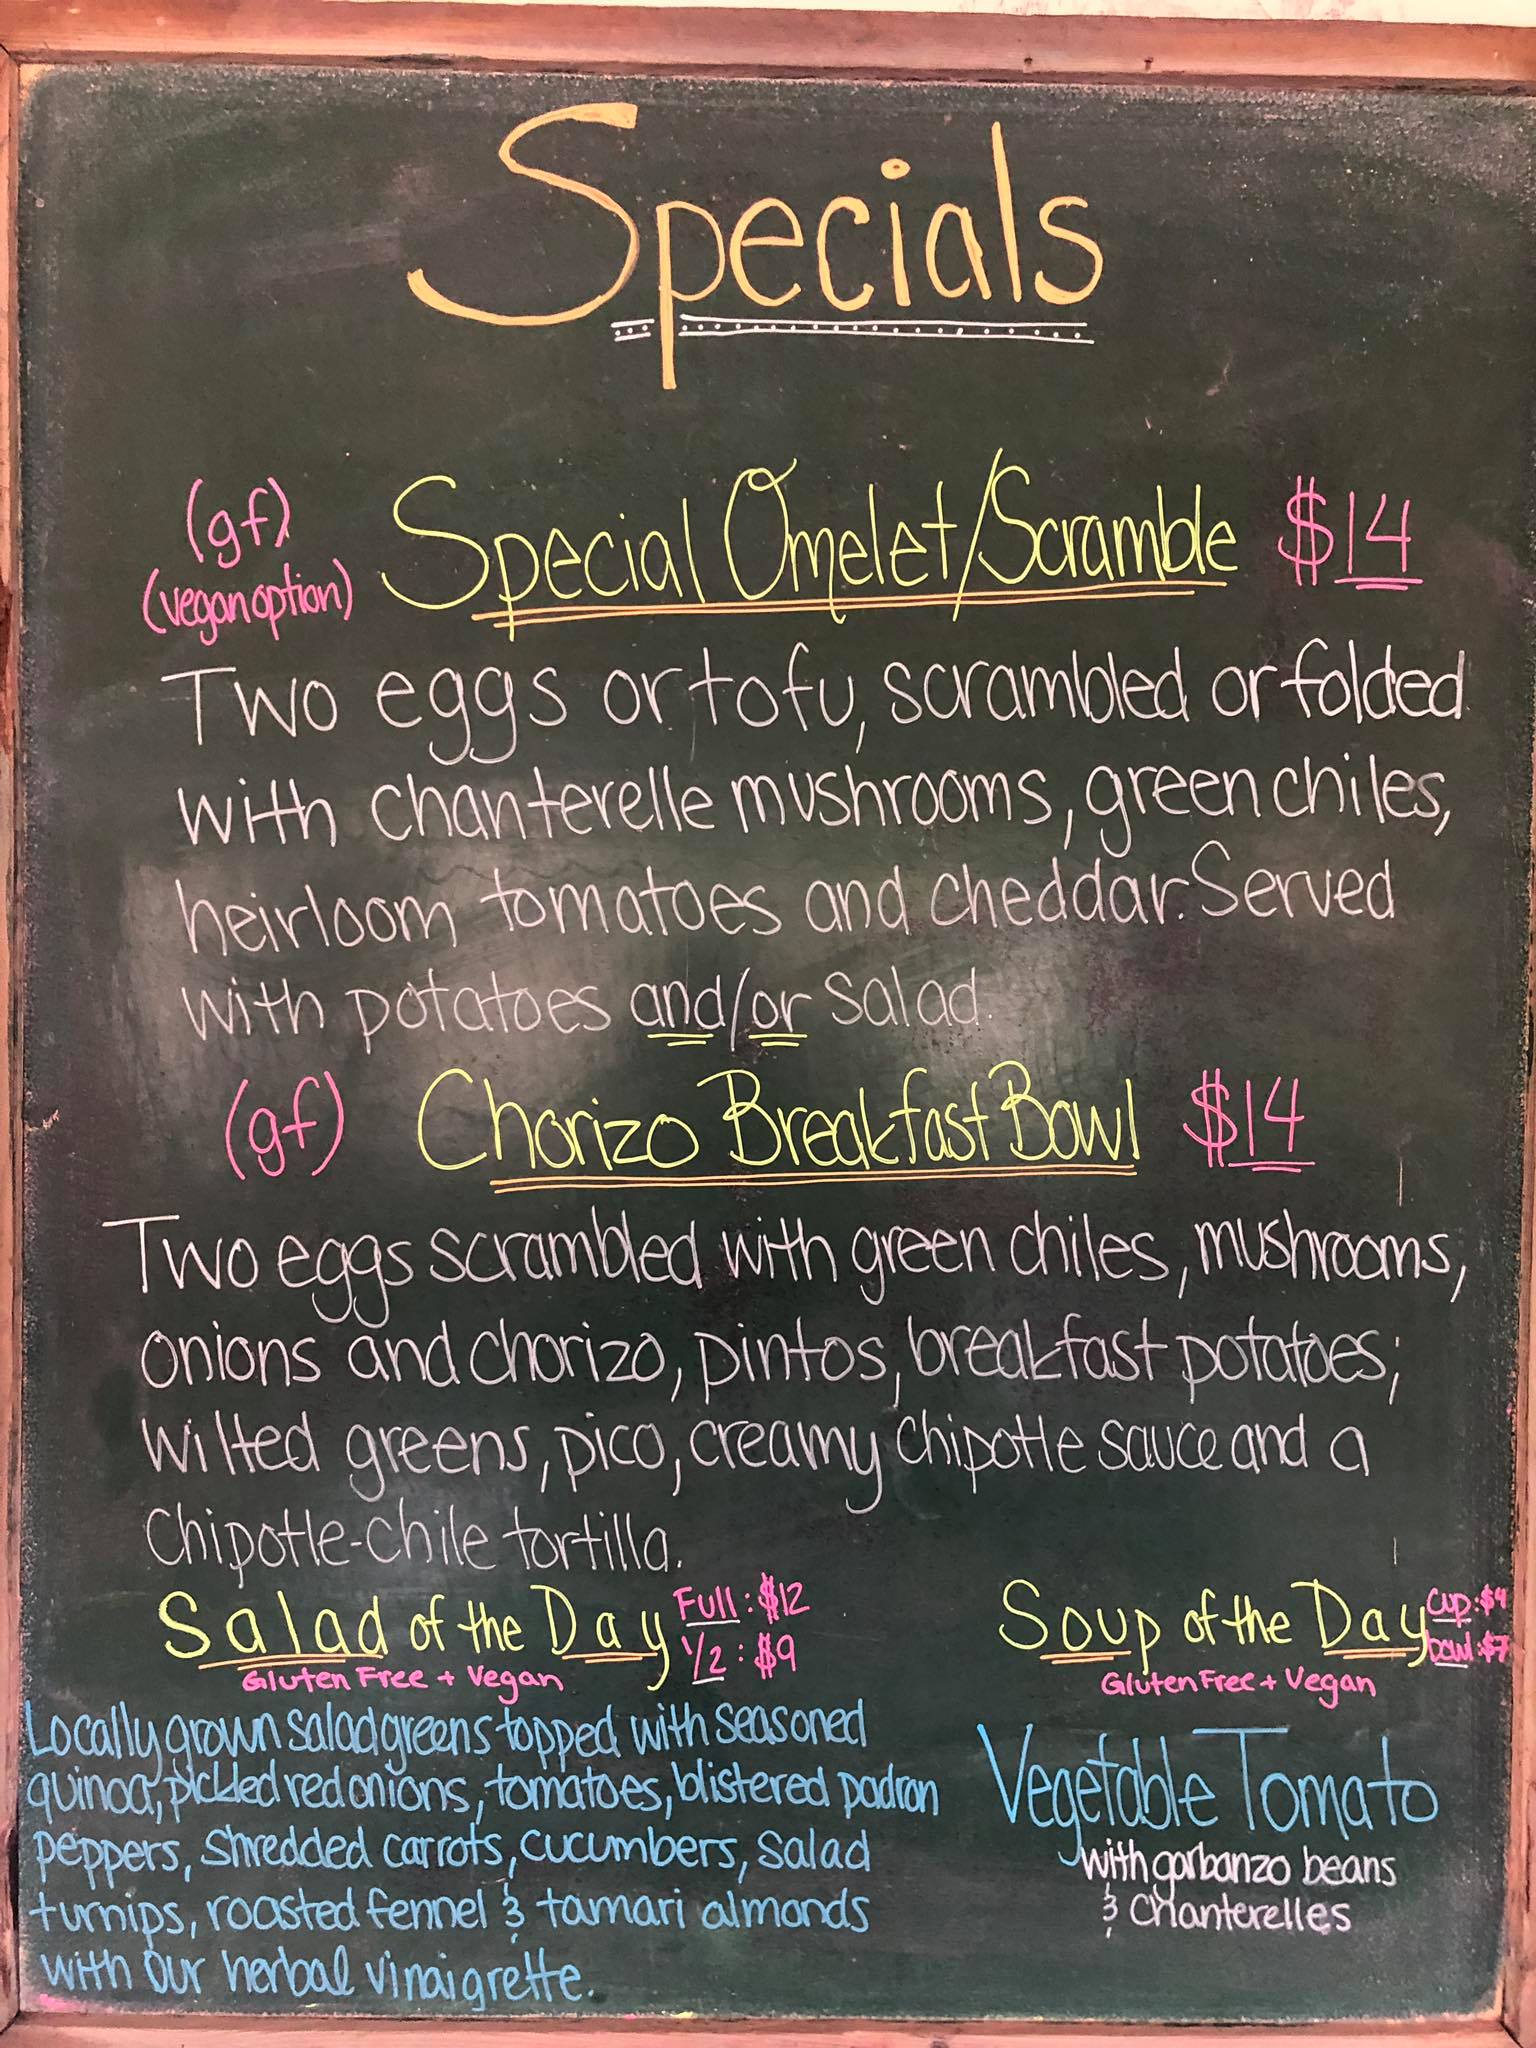 Specials
(gf) Special Omelet/Scramble $14
(vegan option)
Two eggs or tofu, scrambled or folded
with chanterelle mushrooms, green chiles,
heirloom tomatoes and cheddar. Served
with potatoes and/or salad.
(gf) Chorizo Breakfast Bowl $14
Two eggs scrambled with green chiles, mushrooms,
onions and chorizo, pintos, breakfast potatoes,
wilted greens, pico, creamy chipotle sauce and a
Chipotle-chile tortilla.
Salad of the Day Full: $12
1/2: $9
Gluten Free + Vegan
Locally grown salad greens topped with seasoned
quinoa, pickled red onions, tomatoes, blistered padron
peppers, shredded carrots, cucumbers, salad
turnips, roasted fennel & tamari almonds
with our herbal vinaigrette.
Soup of the Day cup: $4
bowl: $7
Gluten Free + Vegan
Vegetable Tomato
with garbanzo beans
& Chanterelles